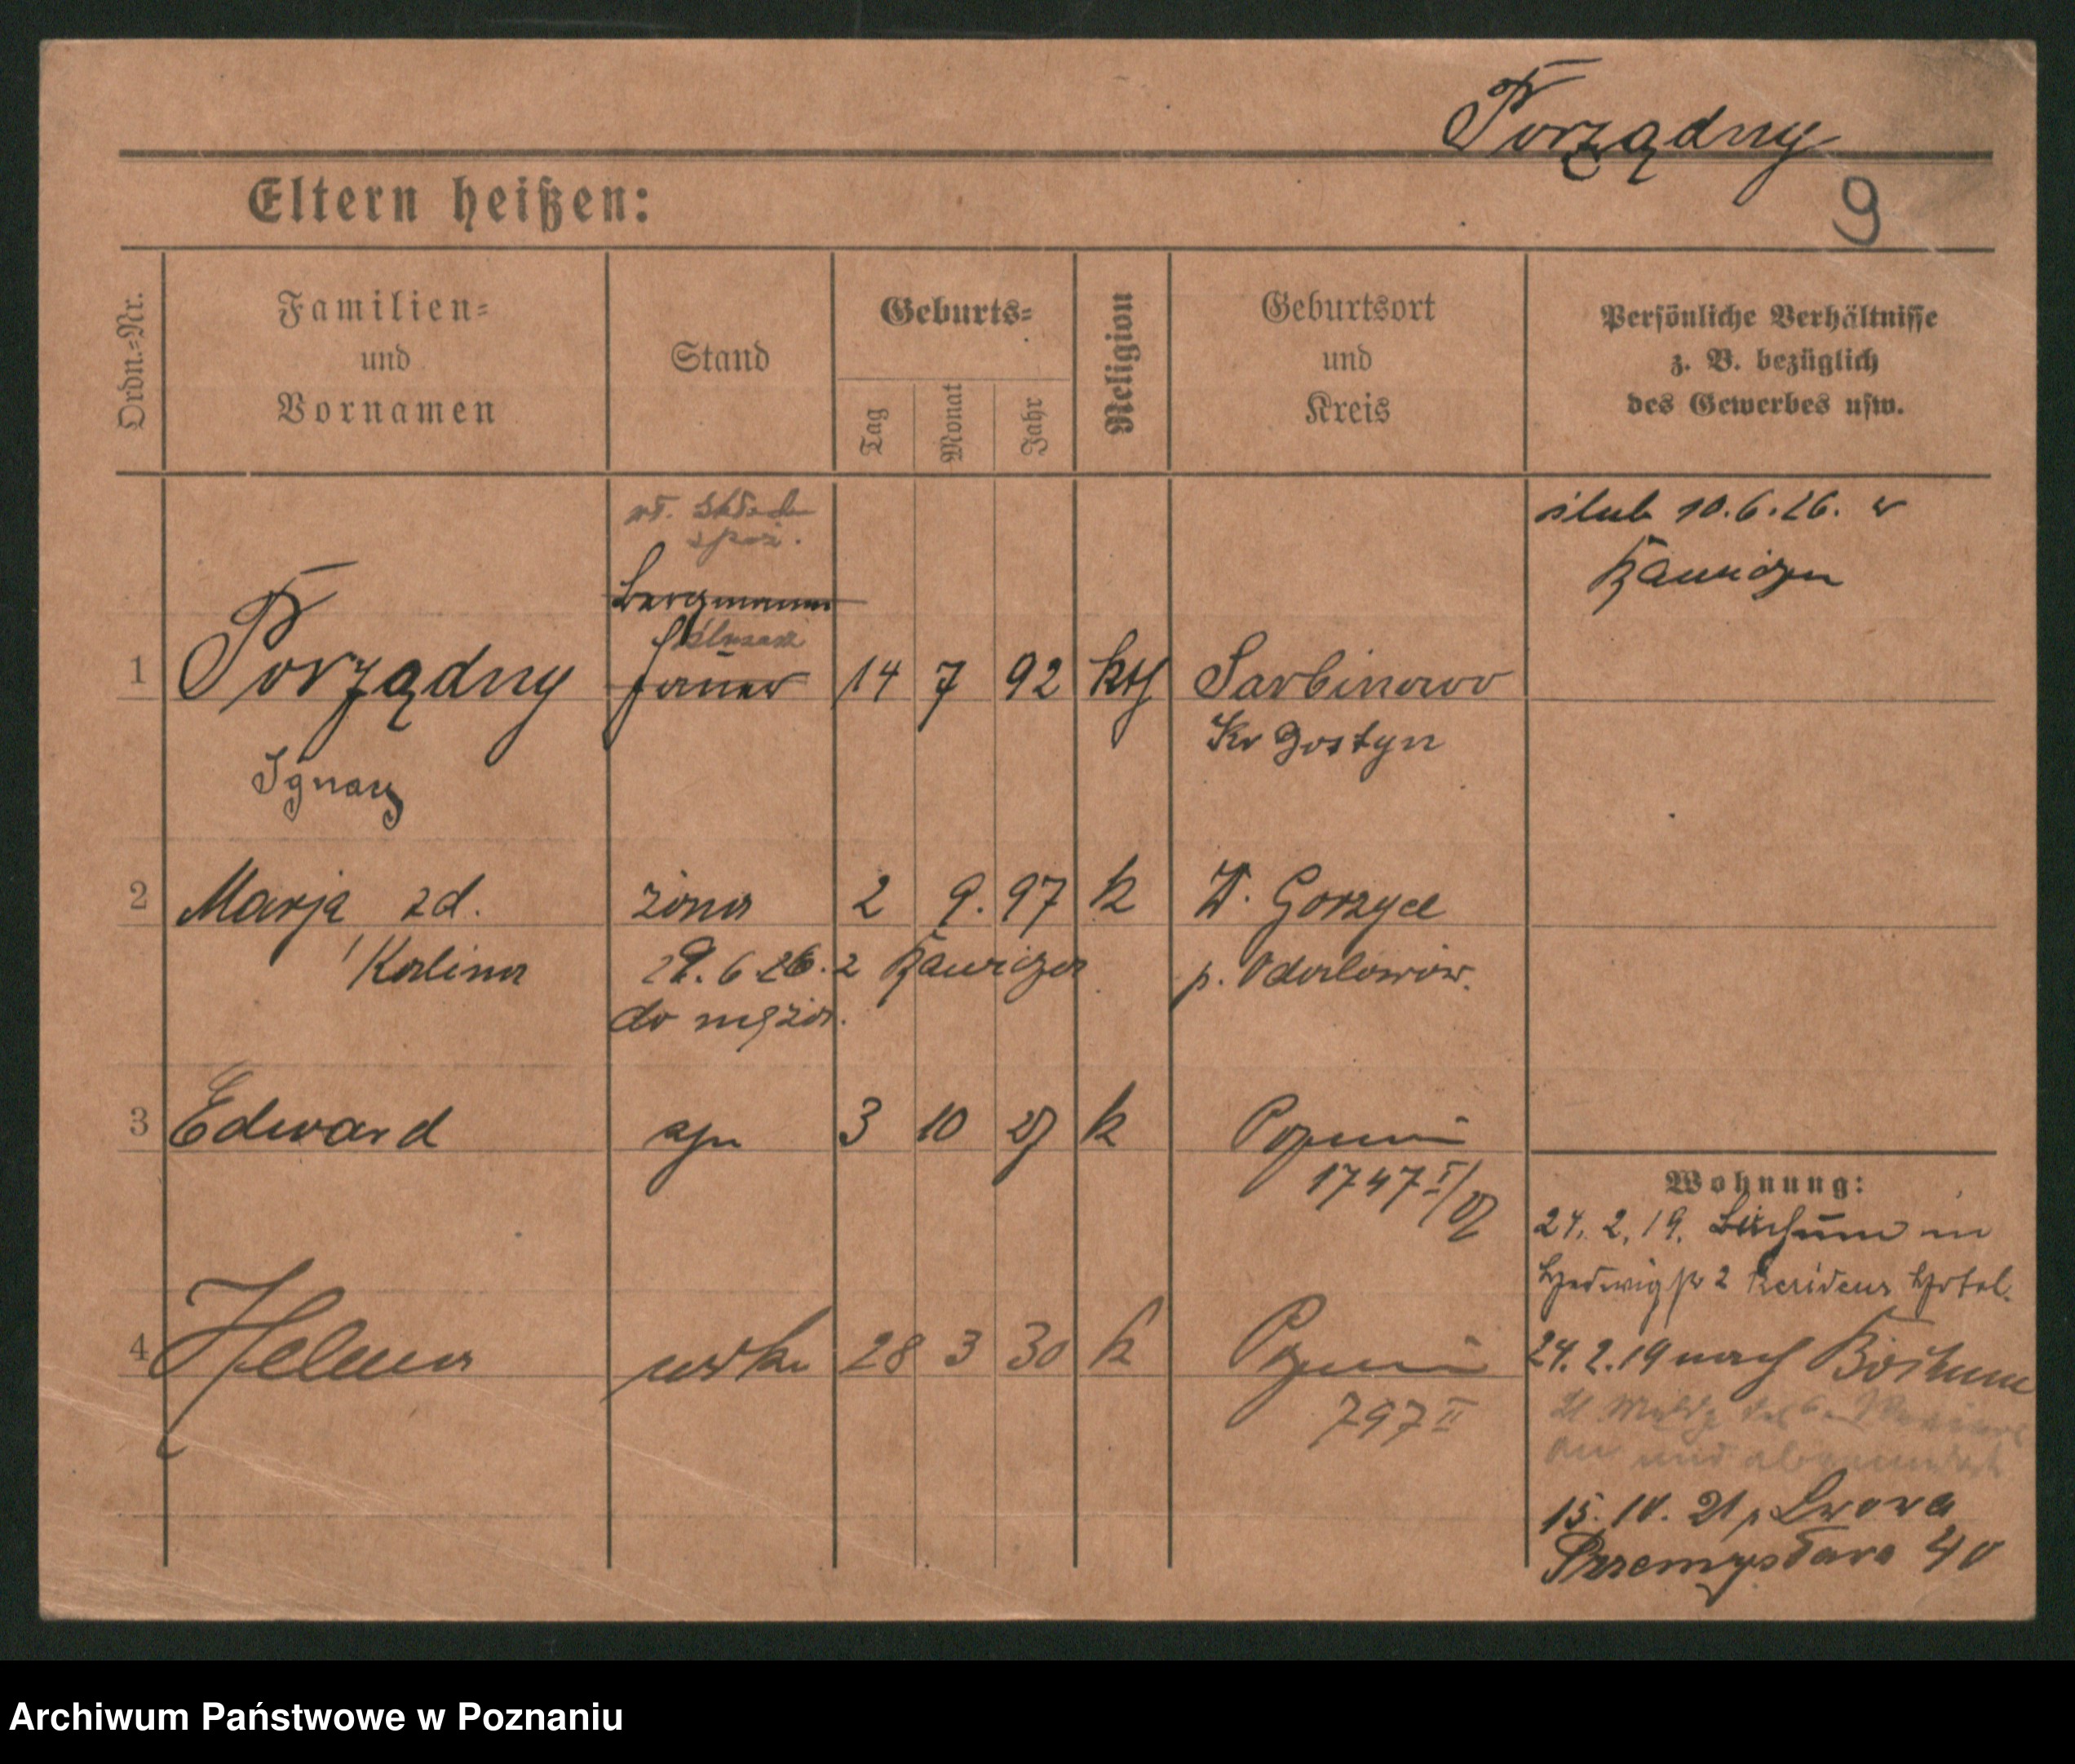 Porządny
9
Eltern heißen:
Ordn.-Nr.
Familien-
und
Vornamen
Stand
Geburts-
Tag
Monat
Jahr
Religion
Geburtsort
und
Kreis
Persönliche Verhältnisse
z. B. bezüglich
des Gewerbes usw.
ślub 10.6.26. w
Bergmann
ślusarz
1 Porządny 14 7 92 kth Sarbinowo
Ignacy
Kr Gostyn
2 Marja zd. żona 2 9. 97 k W. Gorzyce
Kalina
29. 6 26. z
p. Odolanów.
do męża.
3 Edward syn 3 10 27 k Poznań
1747 I/27
Wohnung:
24. 2. 19. Bochum in
Hedwigstr 2 Residenz Hotel.
4 Helena córka 28 3 30 k Poznań
797 II
24. 2. 19 nach Bochum
an und abgemeldet
15. 10. 21
Przemysława 40
Archiwum Państwowe w Poznaniu